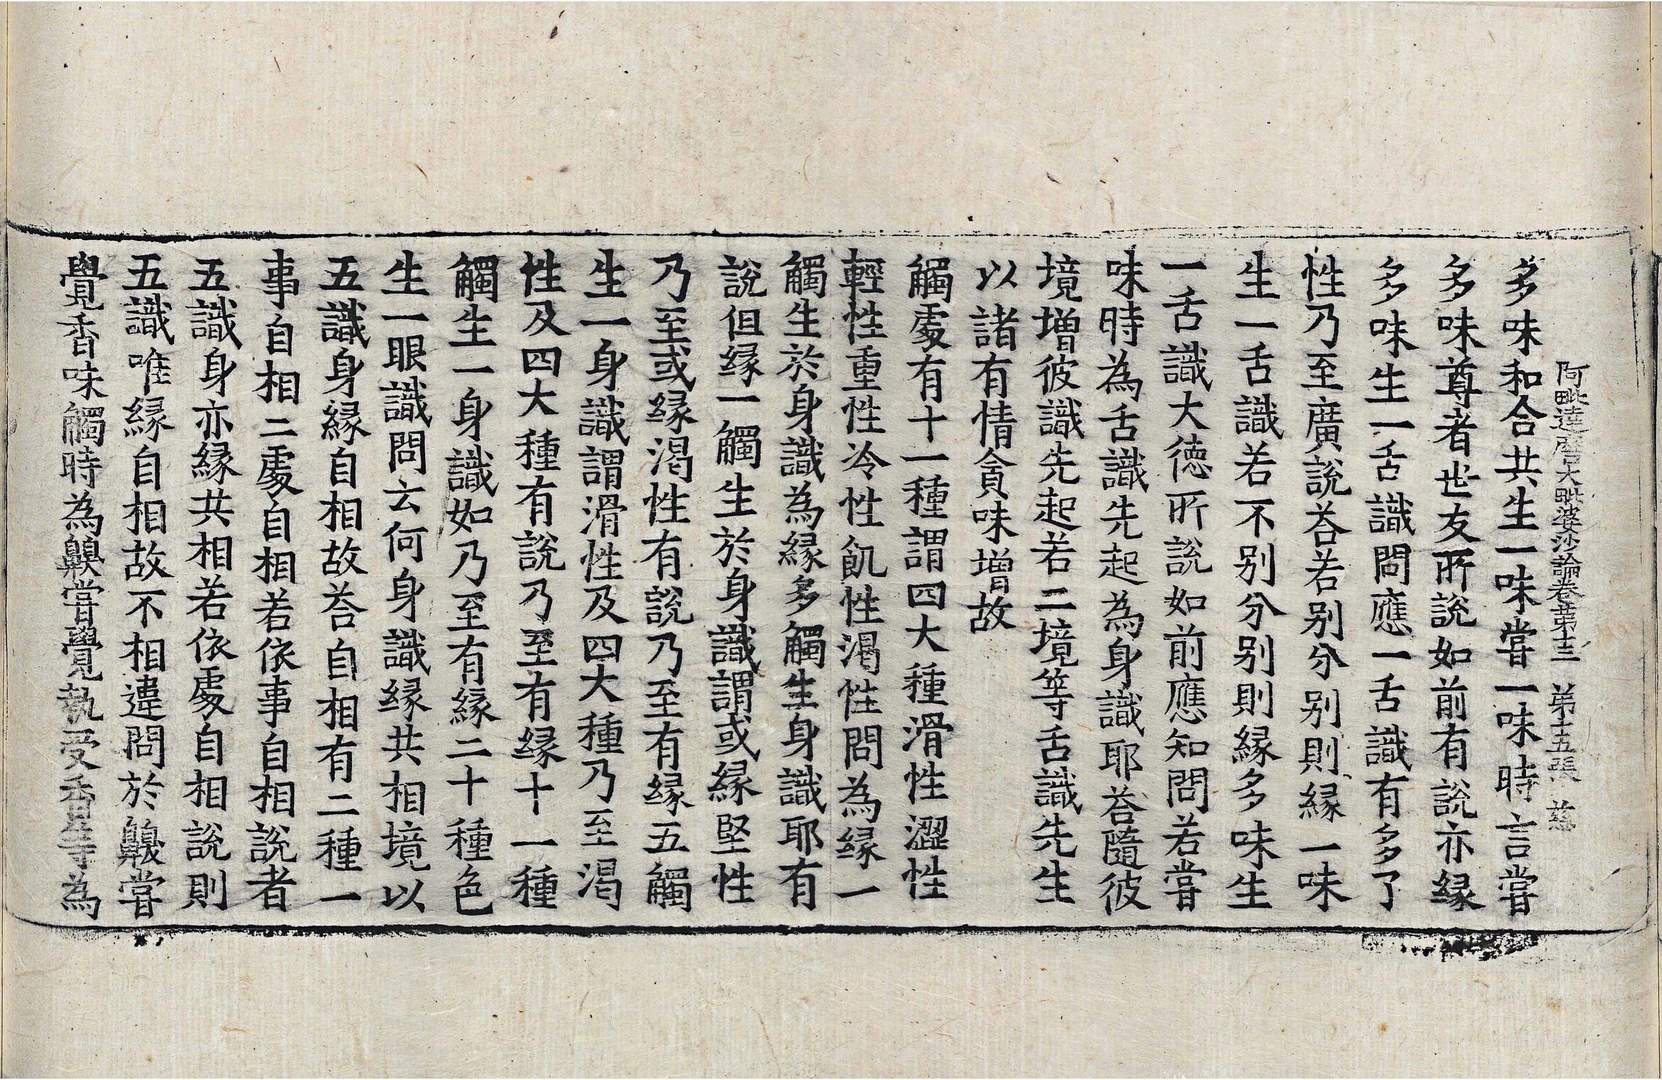 阿毗達磨大毗婆沙論卷苐十三 苐十五張 慈
多味和合共生一味嘗一味時言嘗
多味尊者世友所說如前有說亦緣
多味生一舌識問應一舌識有多了
性乃至廣說荅若别分别則緣一味
生一舌識若不别分别則緣多味生
一舌識大德所說如前應知問若嘗
味時為舌識先起為身識耶荅隨彼
境增彼識先起若二境等舌識先生
以諸有情貪味增故
觸處有十一種謂四大種滑性澀性
輕性重性冷性飢性渴性問為緣一
觸生於身識為緣多觸生身識耶有
說但緣一觸生於身識謂或緣堅性
乃至或緣渴性有說乃至有緣五觸
生一身識謂滑性及四大種乃至渴
性及四大種有說乃至有緣十一種
觸生一身識如乃至有緣二十種色
生一眼識問云何身識緣共相境以
五識身緣自相故荅自相有二種一
事自相二處自相若依事自相說者
五識身亦緣共相若依處自相說則
五識唯緣自相故不相違問於齅嘗
覺香味觸時為齅嘗覺執受香等為